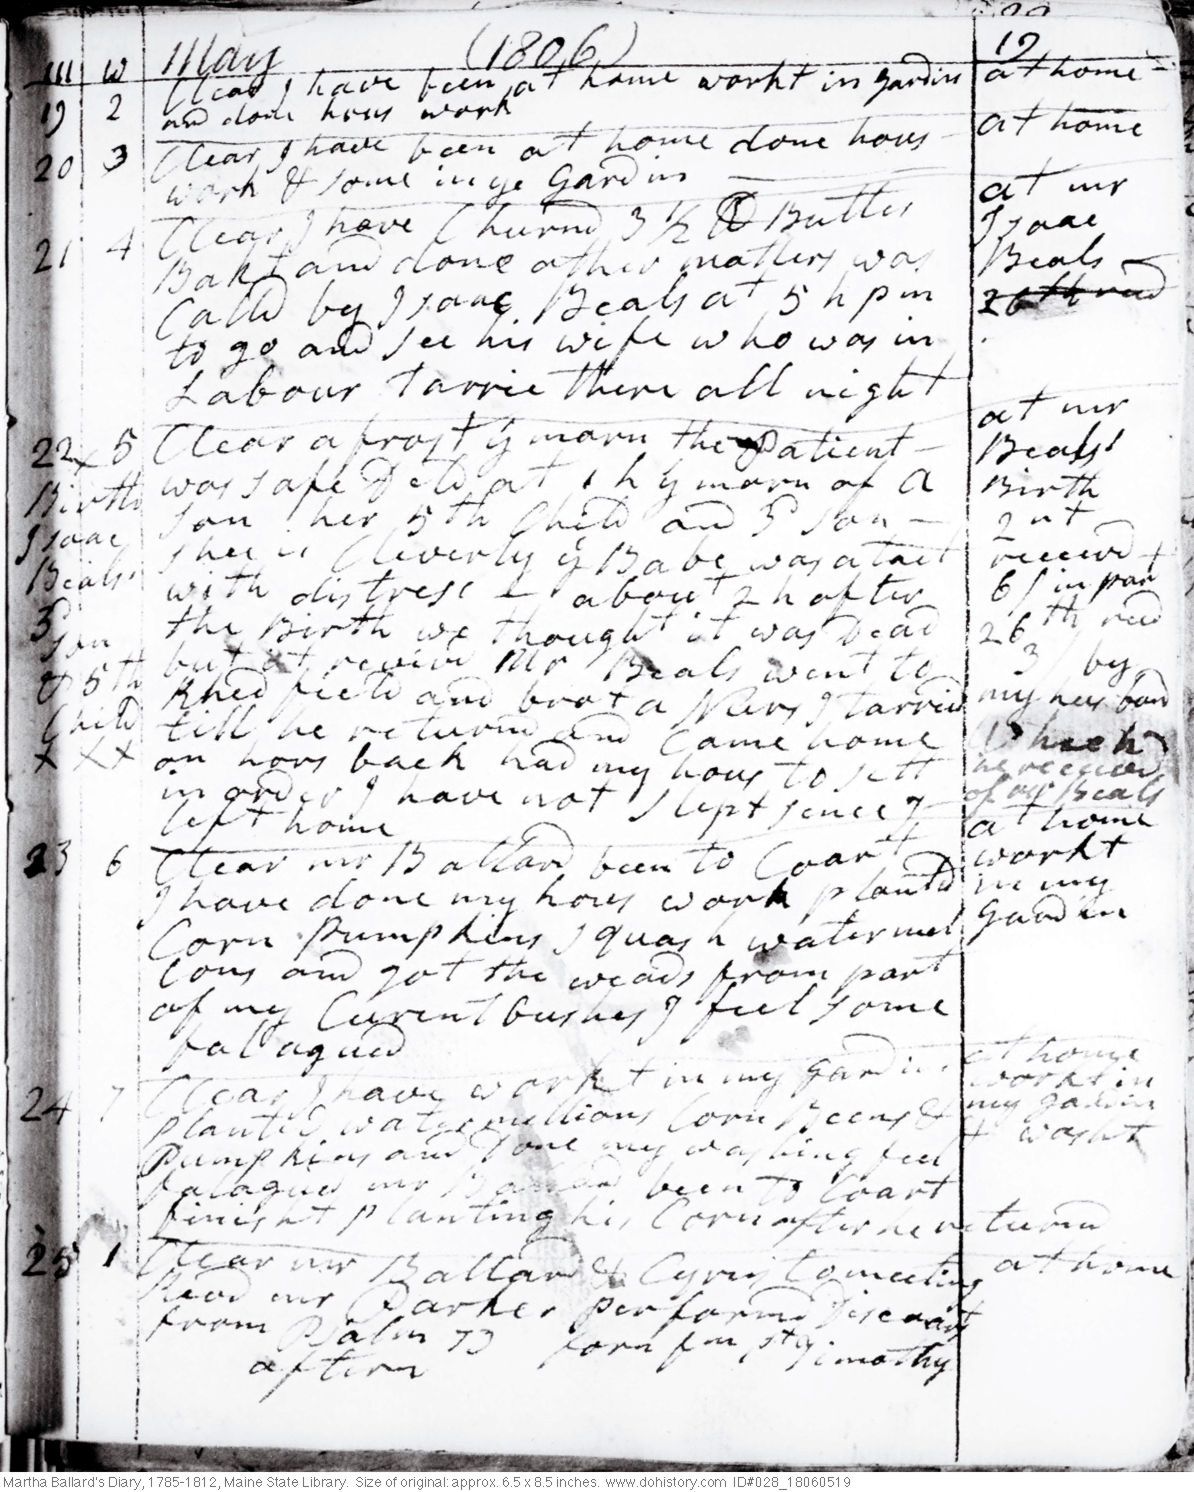 m w May (1806) 19
Clear I have been at home workt in gardin at home
19 2 and done hous work
20 3 Clear I have been at home done hous at home
work & some in ye Gardin
21 4 Clear I have Churnd 3 1/2 lb Butter at mr
Bakt and done other matters was Isaac
Calld by Isaac Beals at 5 h pm Beals
to go and see his wife who was in
Labour Tarrie there all night
22 x 5 Clear a frost ys morn the Patient at mr
Birth was safe Deld at 1 h ys morn of a Beals'
Isaac son her 5th Child and 3d son Birth
Beals' shee is Cleverly ye Babe was atact 2nt
3d with distress about 2 h after received
son the Birth we thought it was Dead 6/ in part
& 5th but it revivd Mr Beals went to 26th recd
Child Khed field and brot a Nurs I tarried 3/ by
x x x till he returnd and Came home my husband
on hors back had my hous to sett Which
in order I have not slept since I he received
left home of mr Beals
23 6 Clear mr Ballard been to Coart at home
I have done my hous work plantd workt
Corn Pumpkins squash watermel in my
lons and got the weads from part Garden
of my Curent bushes I feel some
fatagued
24 7 Clear I have workt in my gardin at home
planted watermellions Corn Beens & workt in
Pumpkins and Done my washing feel my gardin
fatagued mr Ballard been to Coart & washt
finisht planting his Corn after he returnd
25 1 Clear mr Ballard & Cyrus to meeting at home
Revd mr Parker performd Discoars
from Psalm 73 forn fm 1st Timothy
aftern
Martha Ballard's Diary, 1785-1812, Maine State Library. Size of original: approx. 6.5 x 8.5 inches. www.dohistory.com ID#028_18060519